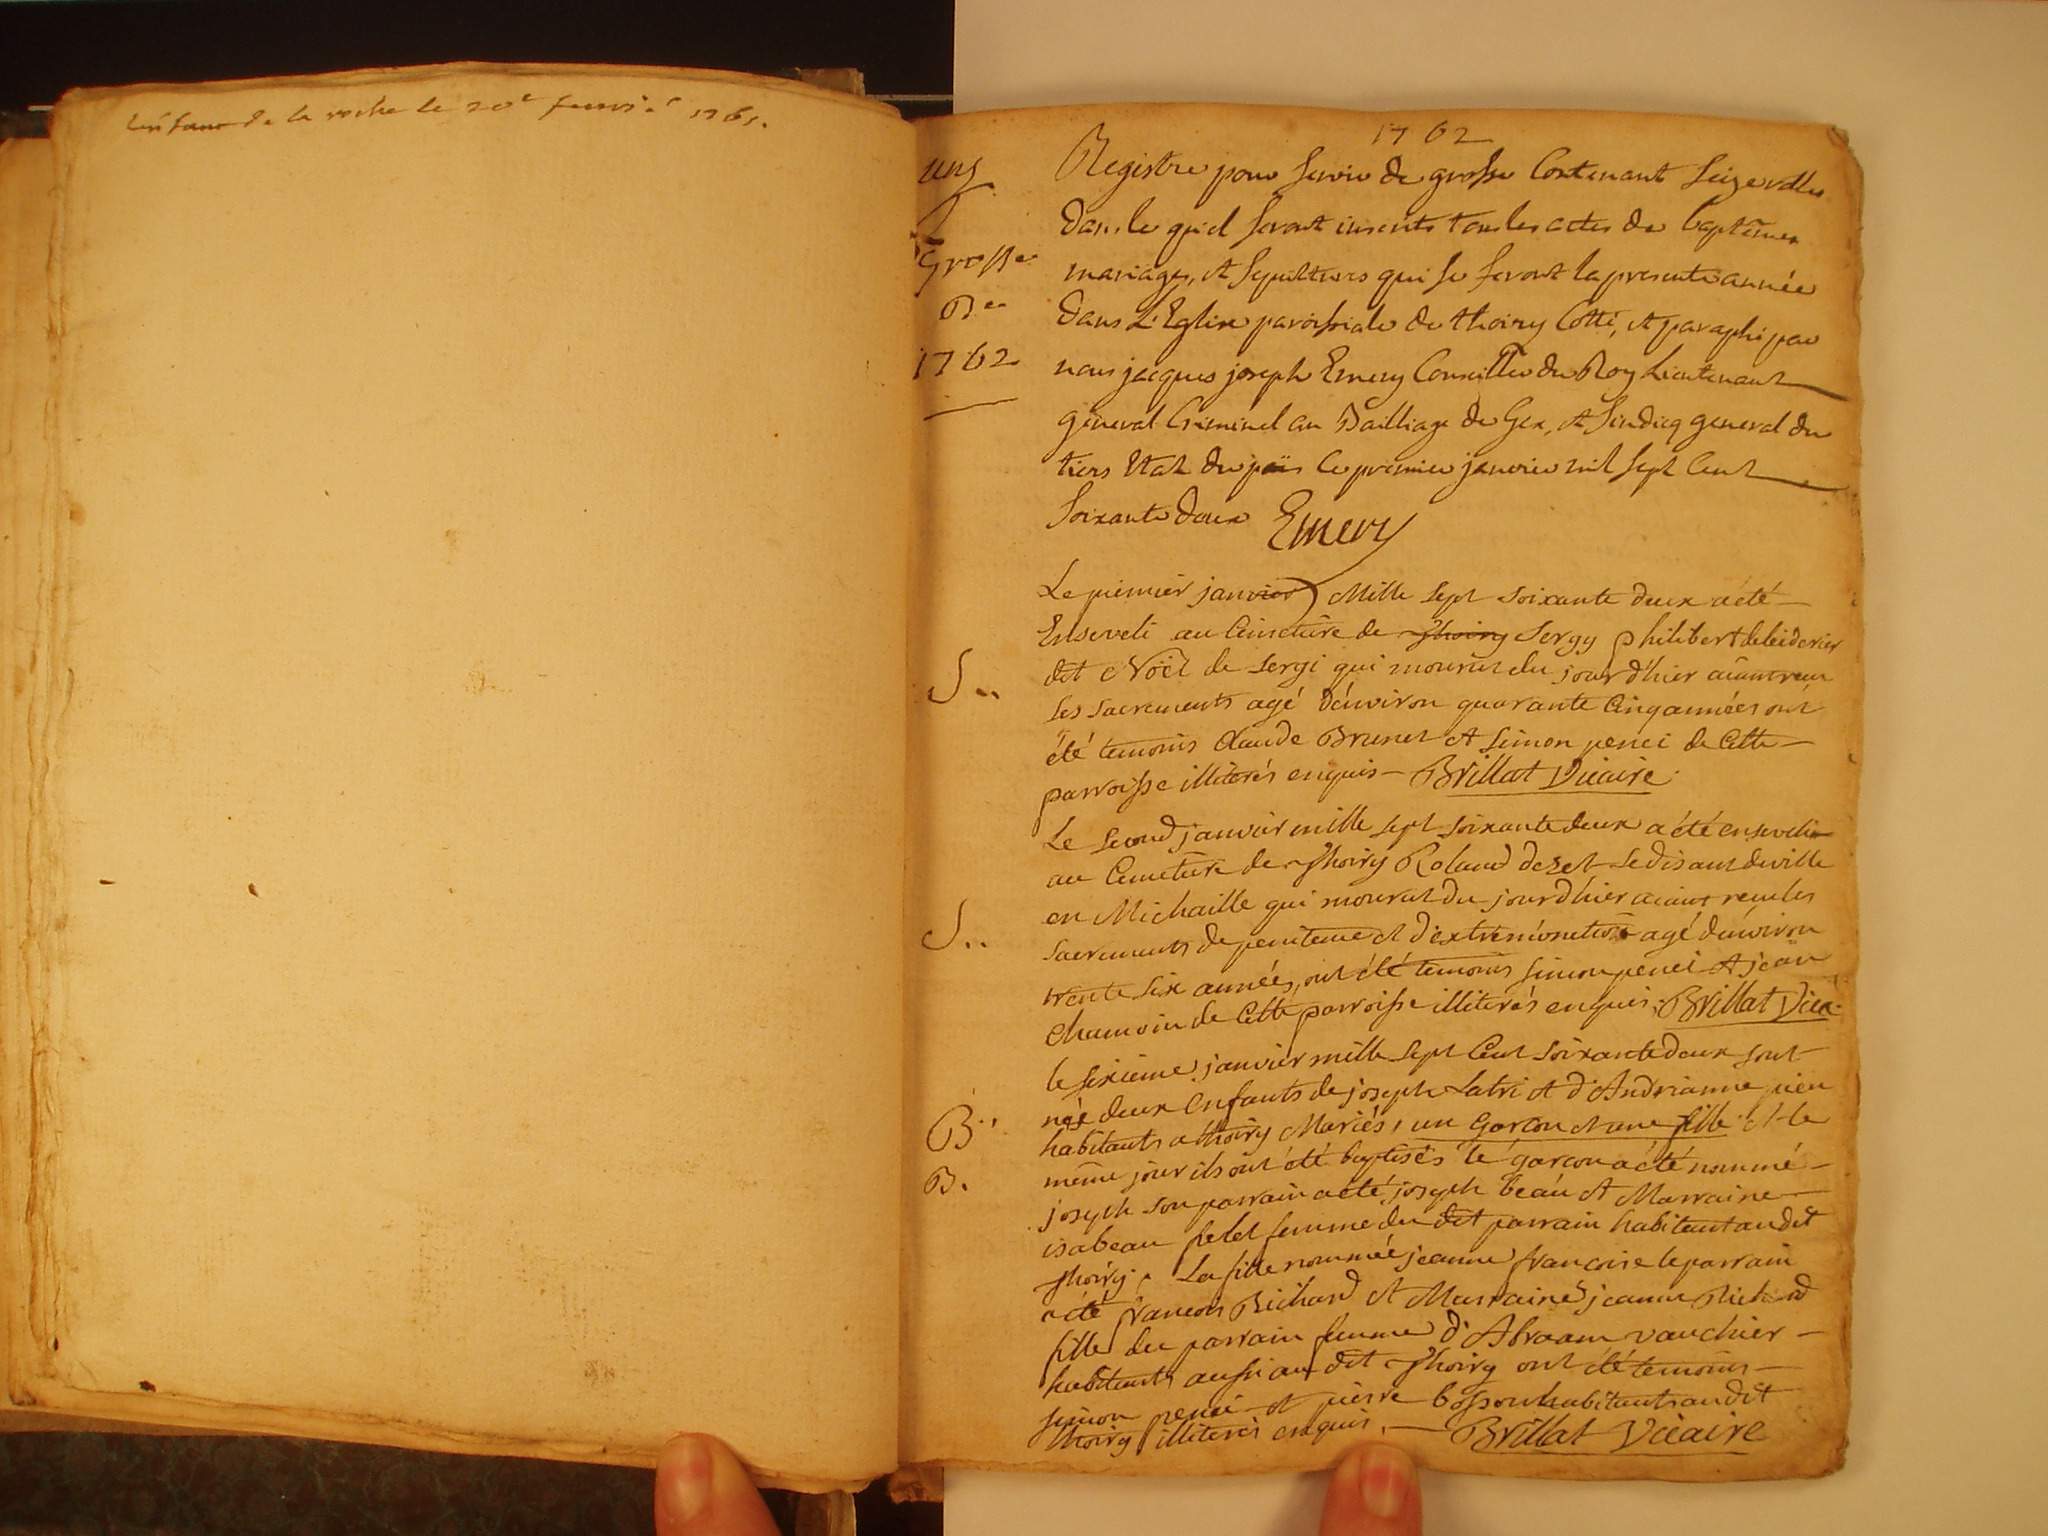 de la roche le 20e 1761.
1762
ung
Grosse
1762
Registre pour servir de grosse Contenant seize rolles
dans le quel seront inscrits tous les actes de baptêmes
mariages, et sepultures qui se feront la presente année
dans L'Eglise paroissiale de thoiry Cotté, et paraphé par
nous jacques joseph Emery Conseiller du Roy Lieutenant
general Criminel au Bailliage de Gex, et sindicq general du
tiers Etat du païs le premier janvier mil sept Cent
soixante deux Emery
Le premier janvier Mille sept soixante deux a été
Enseveli au Cimetiére de Thoiry Sergy philibert
S..
dit Noël de Sergi qui mourut du jour d'hier aiant reçu
les sacrements agé d'environ quarante Cinq années ont
été temoins Claude Brunet et simon penei de Cette
parroisse illiterés enquis Brillat Vicaire.
Le second janvier mille sept soixante deux a été enseveli
au Cimetiére de Thoiry Roland dezet se disant de ville
en Michaille qui mourut du jour d'hier aiant reçu les
S..
sacrements de penitence et d'extremonction agé d'environ
trente six années, ont été temoins simon penei et jean
Chamoin de Cette parroisse illiterés enquis. Brillat Vica.
le sixieme janvier mille sept Cent soixante deux sont
nés deux enfants de joseph Latri et d'Andrianne
B..
habitants a thoiry Mariés, un garcon et une fille et le
même jour ils ont été baptisés le garcon a été nommé
B.
joseph son parrain a été joseph beau et Marraine
isabeau petet femme du dit parrain habitant au dit
Thoiry. La fille nommée jeanne francoise le parrain
a été francois Richard et Marraine jeanne Richard
fille du parrain femme d'Abraam vauchier
habitants aussi au dit Thoiry ont été temoins
simon penei et pierre bosson habitants au dit
thoiry illiterés enquis. Brillat Vicaire